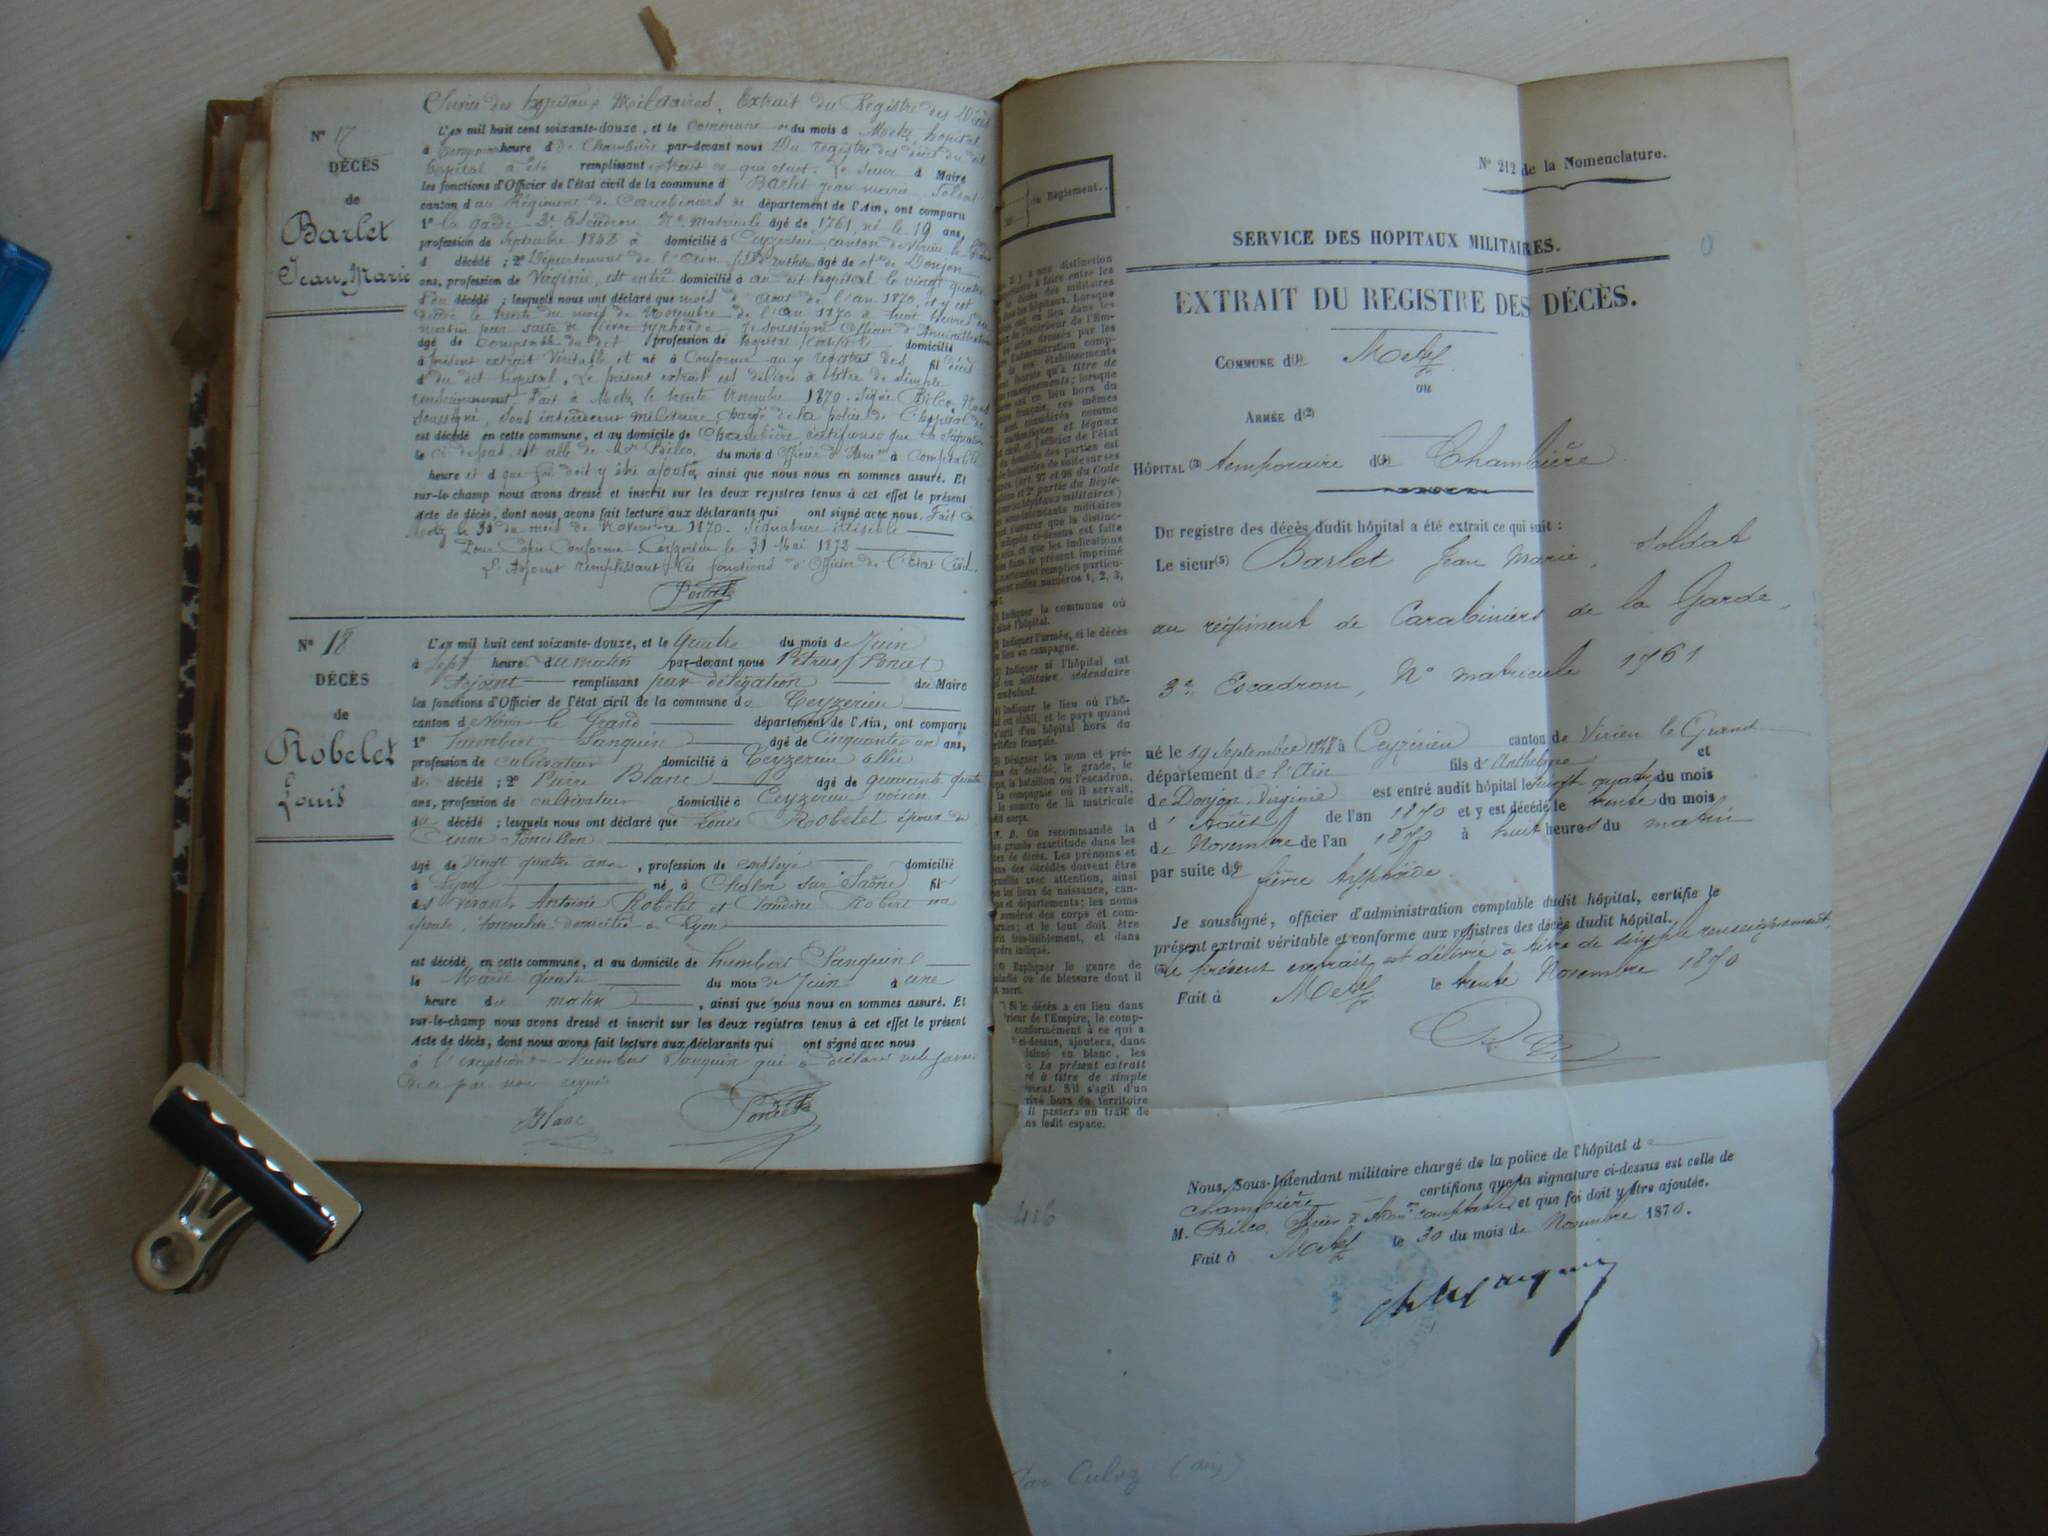 Service des hôpitaux Militaires. Extrait du Registre des Décès
N° 17
DÉCÈS
de
Barlet
Jean-Marie
L'an mil huit cent soixante-douze, et le Commune de du mois d Metz, hopital
à temporaire heure d de Chambière par-devant nous Du registre des décès du dit
hopital a été remplissant extrait ce qui suit. Le Sieur d Maire
les fonctions d'Officier de l'état civil de la commune d Barlet Jean marie, Soldat
canton d au Régiment de Carabiniers de département de l'Ain, ont comparu
1° la garde 3e Escadron N° matricule âgé de 1761, né le 19 ans,
profession de Septembre 1848 à domicilié à Ceyzerieu, canton de Virieu le Grand
d décédé ; 2° Département de l'Ain fils d'Anthelme âgé de et de Donjon
ans, profession de Virginie, est entré domicilié à au dit hopital le vingt quatre
d du décédé ; lesquels nous ont déclaré que mois d'Août de l'an 1870, et y est
décédé le trente du mois de Novembre de l'an 1870 à huit heures du
matin par suite de fièvre typhoïde Je soussigné Officier d'Administration
âgé de Comptable du dit profession de hopital, certifie domicilié
à présent extrait Véritable et né à Conforme au registres des fil décès
d du dit hopital. Le présent extrait est délivré à titre de simple
renseignement. Fait à Metz le trente Novembre 1870. Signé Bilco, Nous
Soussigné, Sous intendant militaire chargé de la police de l'hopital de
est décédé en cette commune, et au domicile de Chambière certifions que la signature
le ci dessus, est celle de Mr Bilco, du mois d Officier d'Admon à Comptable
heure et d que foi doit y être ajoutée, ainsi que nous nous en sommes assuré. Et
sur-le-champ nous avons dressé et inscrit sur les deux registres tenus à cet effet le présent
Acte de décès, dont nous avons fait lecture aux déclarants qui ont signé avec nous. Fait à
Metz le 30 du mois de Novembre 1870. Signature illisible
Pour Copie Conforme. Ceyzerieu le 31 Mai 1872
L'Adjoint remplissant les fonctions d'Officier de l'Etat Civil.
Poncet
N° 18
DÉCÈS
de
Robelet
Louis
L'an mil huit cent soixante-douze, et le Quatre du mois de Juin
à Sept heure du matin par-devant nous Pétrus Poncet
Adjoint remplissant par délégation du Maire
les fonctions d'Officier de l'état civil de la commune de Ceyzerieu
canton de Virieu le Grand département de l'Ain, ont comparu
1° humbert Sanquin âgé de Cinquante un ans,
profession de cultivateur domicilié à Ceyzerieu allié
du décédé ; 2° Pierre Blanc âgé de quarante quatre
ans, profession de cultivateur domicilié à Ceyzerieu voisin
du décédé ; lesquels nous ont déclaré que Louis Robelet époux de
âgé de vingt quatre ans, profession de employé domicilié
à Lyon né, à Chalon sur Saône fil
des vivants Antoine Robelet et Claudine Robert
domicilié à Lyon
est décédé en cette commune, et au domicile de humbert Sanquin
le Mardi quatre du mois de Juin à une
heure du matin, ainsi que nous nous en sommes assuré. Et
sur-le-champ nous avons dressé et inscrit sur les deux registres tenus à cet effet le présent
Acte de décès, dont nous avons fait lecture aux déclarants qui ont signé avec nous
à l'exception humbert Sanquin qui a déclaré ne le savoir
de ce par nous requis
Blanc Poncet
du Règlement.
N° 212 de la Nomenclature.
SERVICE DES HOPITAUX MILITAIRES.
EXTRAIT DU REGISTRE DES DÉCÈS.
COMMUNE d(1) Metz
ou
ARMÉE d(2)
HÔPITAL (3) temporaire d(4)e Chambière
Du registre des décès dudit hôpital a été extrait ce qui suit :
Le sieur(5) Barlet Jean Marie, Soldat
au régiment de Carabiniers de la Garde,
3e Escadron, N° matricule 1761
né le 19 Septembre 1848 à Ceyzérieu canton de Virieu le Grand
département de l'Ain fils d'Anthelme et
de Donjon Virginie est entré audit hôpital le vingt quatre du mois
d'Août de l'an 1870 et y est décédé le trente du mois
de Novembre de l'an 1870 à huit heures du matin
par suite d(6)e fièvre typhoïde
Je soussigné, officier d'administration comptable dudit hôpital, certifie le
présent extrait véritable et conforme aux registres des décès dudit hôpital.
(7) Le présent extrait est délivré à titre de simple renseignement.
Fait à Metz le trente Novembre 1870
Nous, Sous-Intendant militaire chargé de la police de l'hôpital d
Chambière certifions que la signature ci-dessus est celle de
M. Bilco, Officier d'Admon comptable et que foi doit y être ajoutée.
Fait à Metz le 30 du mois de Novembre 1870.
416
Par Culoz (ain)
il y a une distinction
à faire entre les
de décès des militaires
dans les hôpitaux. Lorsque
a eu lieu dans les
de l'intérieur de l'Em-
dressés par les
d'administration comp-
de ces établissements
qu'à titre de
renseignements; lorsque
ont eu lieu hors du
français, ces mêmes
sont considérés comme
authentiques et légaux
l'officier de l'état
(Art. 97 et 98 du Code
et 2e partie du Règle-
hôpitaux militaires.)
sous-intendants militaires
s'assurer que la distinc-
ci-dessus est faite
et que les indications
dans le présent imprimé
remplies particu-
numéros 1, 2, 3,
Indiquer la commune où
situé l'hôpital.
Indiquer l'armée, si le décès
a eu lieu en campagne.
Indiquer si l'hôpital est
militaire sédentaire
ambulant.
Indiquer le lieu où l'hô-
est établi, et le pays quand
s'agit d'un hôpital hors du
territoire français.
Désigner les nom et pré-
du décédé, le grade, le
le bataillon ou l'escadron,
la compagnie où il servait,
le numéro de la matricule
dudit corps.
N. B. On recommande la
plus grande exactitude dans les
actes de décès. Les prénoms et
noms des décédés doivent être
recueillis avec attention, ainsi
les lieux de naissance, can-
et départements; les noms
numéros des corps et com-
pagnies; et le tout doit être
très-lisiblement, et dans
l'ordre indiqué.
(6) Expliquer le genre de
maladie ou de blessure dont il
est mort.
Si le décès a eu lieu dans
l'intérieur de l'Empire, le comp-
conformément à ce qui a
ci-dessus, ajoutera, dans
laissé en blanc, les
Le présent extrait
à titre de simple
S'il s'agit d'un
hors du territoire
il passera un trait de
dans ledit espace.